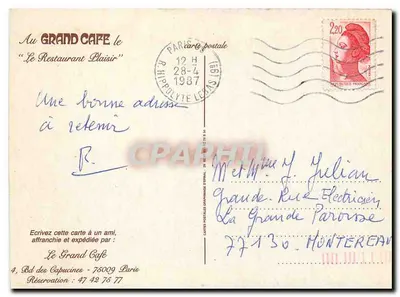 Au GRAND CAFE le
"Le Restaurant Plaisir"
carte postale
PARIS
12 H
28-4
1987
R. HIPPOLYTE LEBAS (9E)
2,20
Une bonne adresse
à retenir
R.
CPARHPI
Met Mme J. Julian
Grande Rue
La Grande Paroisse
77130 MONTEREAU
Ecrivez cette carte à un ami,
affranchie et expédiée par :
Le Grand Café
4, Bd des Capucines - 75009 Paris
Réservation : 47 42 75 77